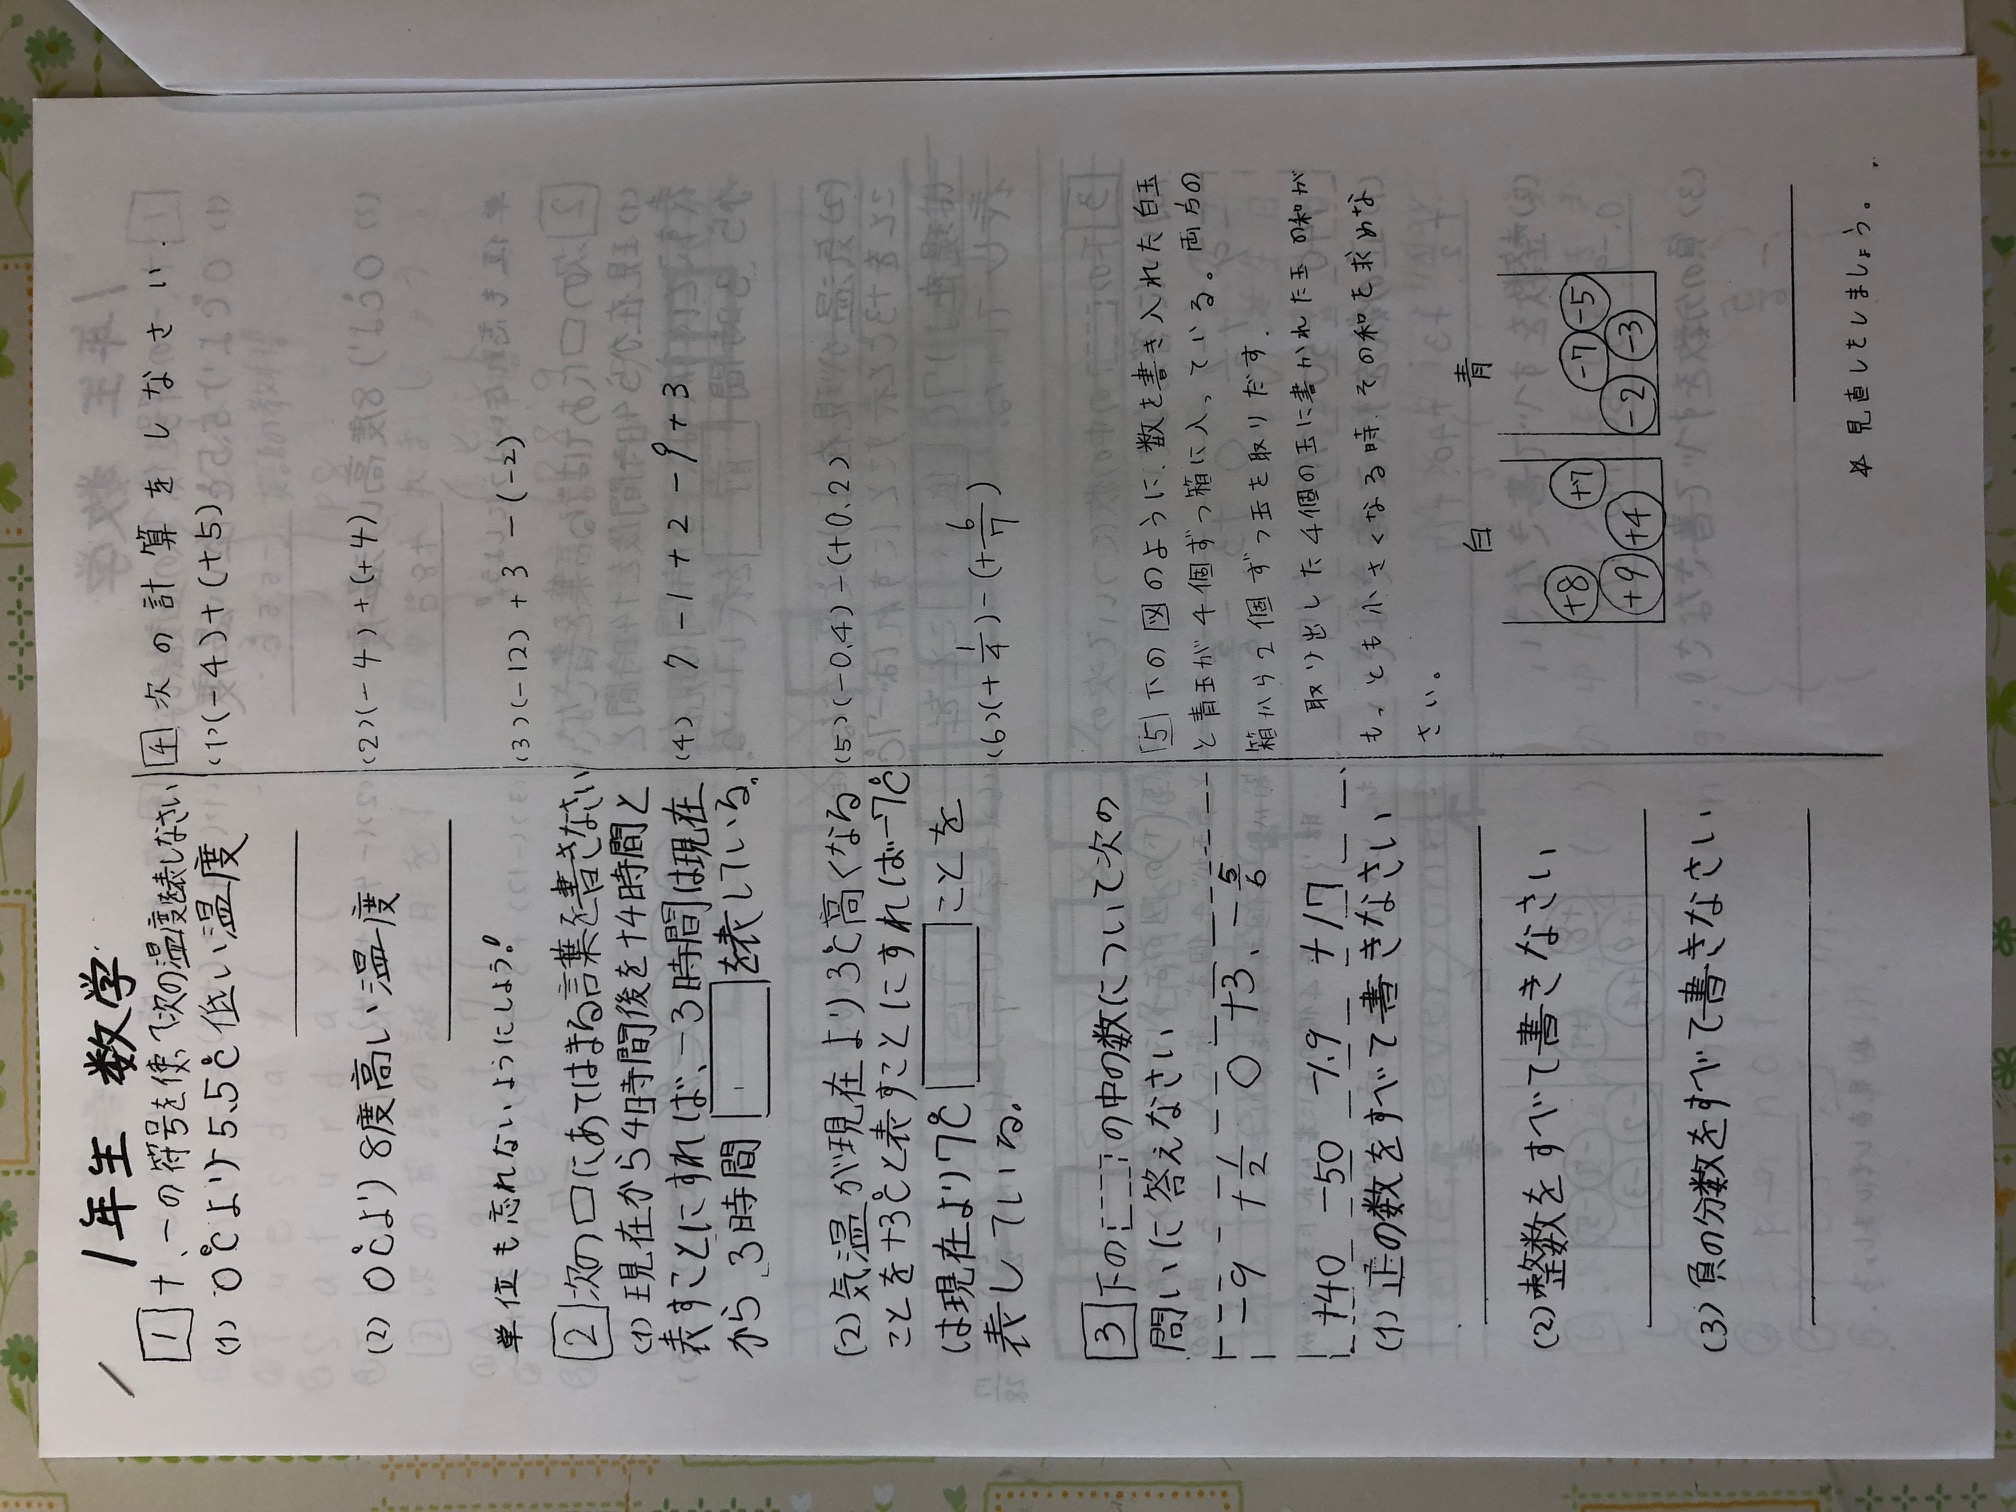 1年生 数学
1 +、−の符号を使って次の温度を表しなさい
(1) 0℃より5.5℃低い温度
(2) 0℃より8度高い温度
単位も忘れないようにしよう!
2 次の口にあてはまる言葉を書きなさい
(1) 現在から4時間後を+4時間と
表すことにすれば、−3時間は現在
から、3時間 を表している。
(2) 気温が現在より3℃高くなる
ことを+3℃と表すことにすれば−7℃
は現在より7℃ ことを
表している。
3 下の の中の数について次の
問いに答えなさい
−9 +1/2 0 +3、−5/6
+40 −50 −7.9 +17
(1) 正の数をすべて書きなさい
(2) 整数をすべて書きなさい
(3) 負の分数をすべて書きなさい
4 次の計算をしなさい.
(1) (−4)+(+5)
(2) (−4)+(+4)
(3) (−12)+3−(−2)
(4) 7−1+2−9+3
(5) (−0.4)−(+0.2)
(6) (+1/4)−(+6/7)
5 下の図のように、数を書き入れた白玉
と青玉が4個ずつ箱に入っている。両方の
箱から2個ずつ玉を取りだす.
取り出した4個の玉に書かれた玉の和が
もっとも小さくなる時、その和を求めな
さい。
白 青
+8 +7 +9 +4
−7 −5 −2 −3
* 見直しをしましょう。